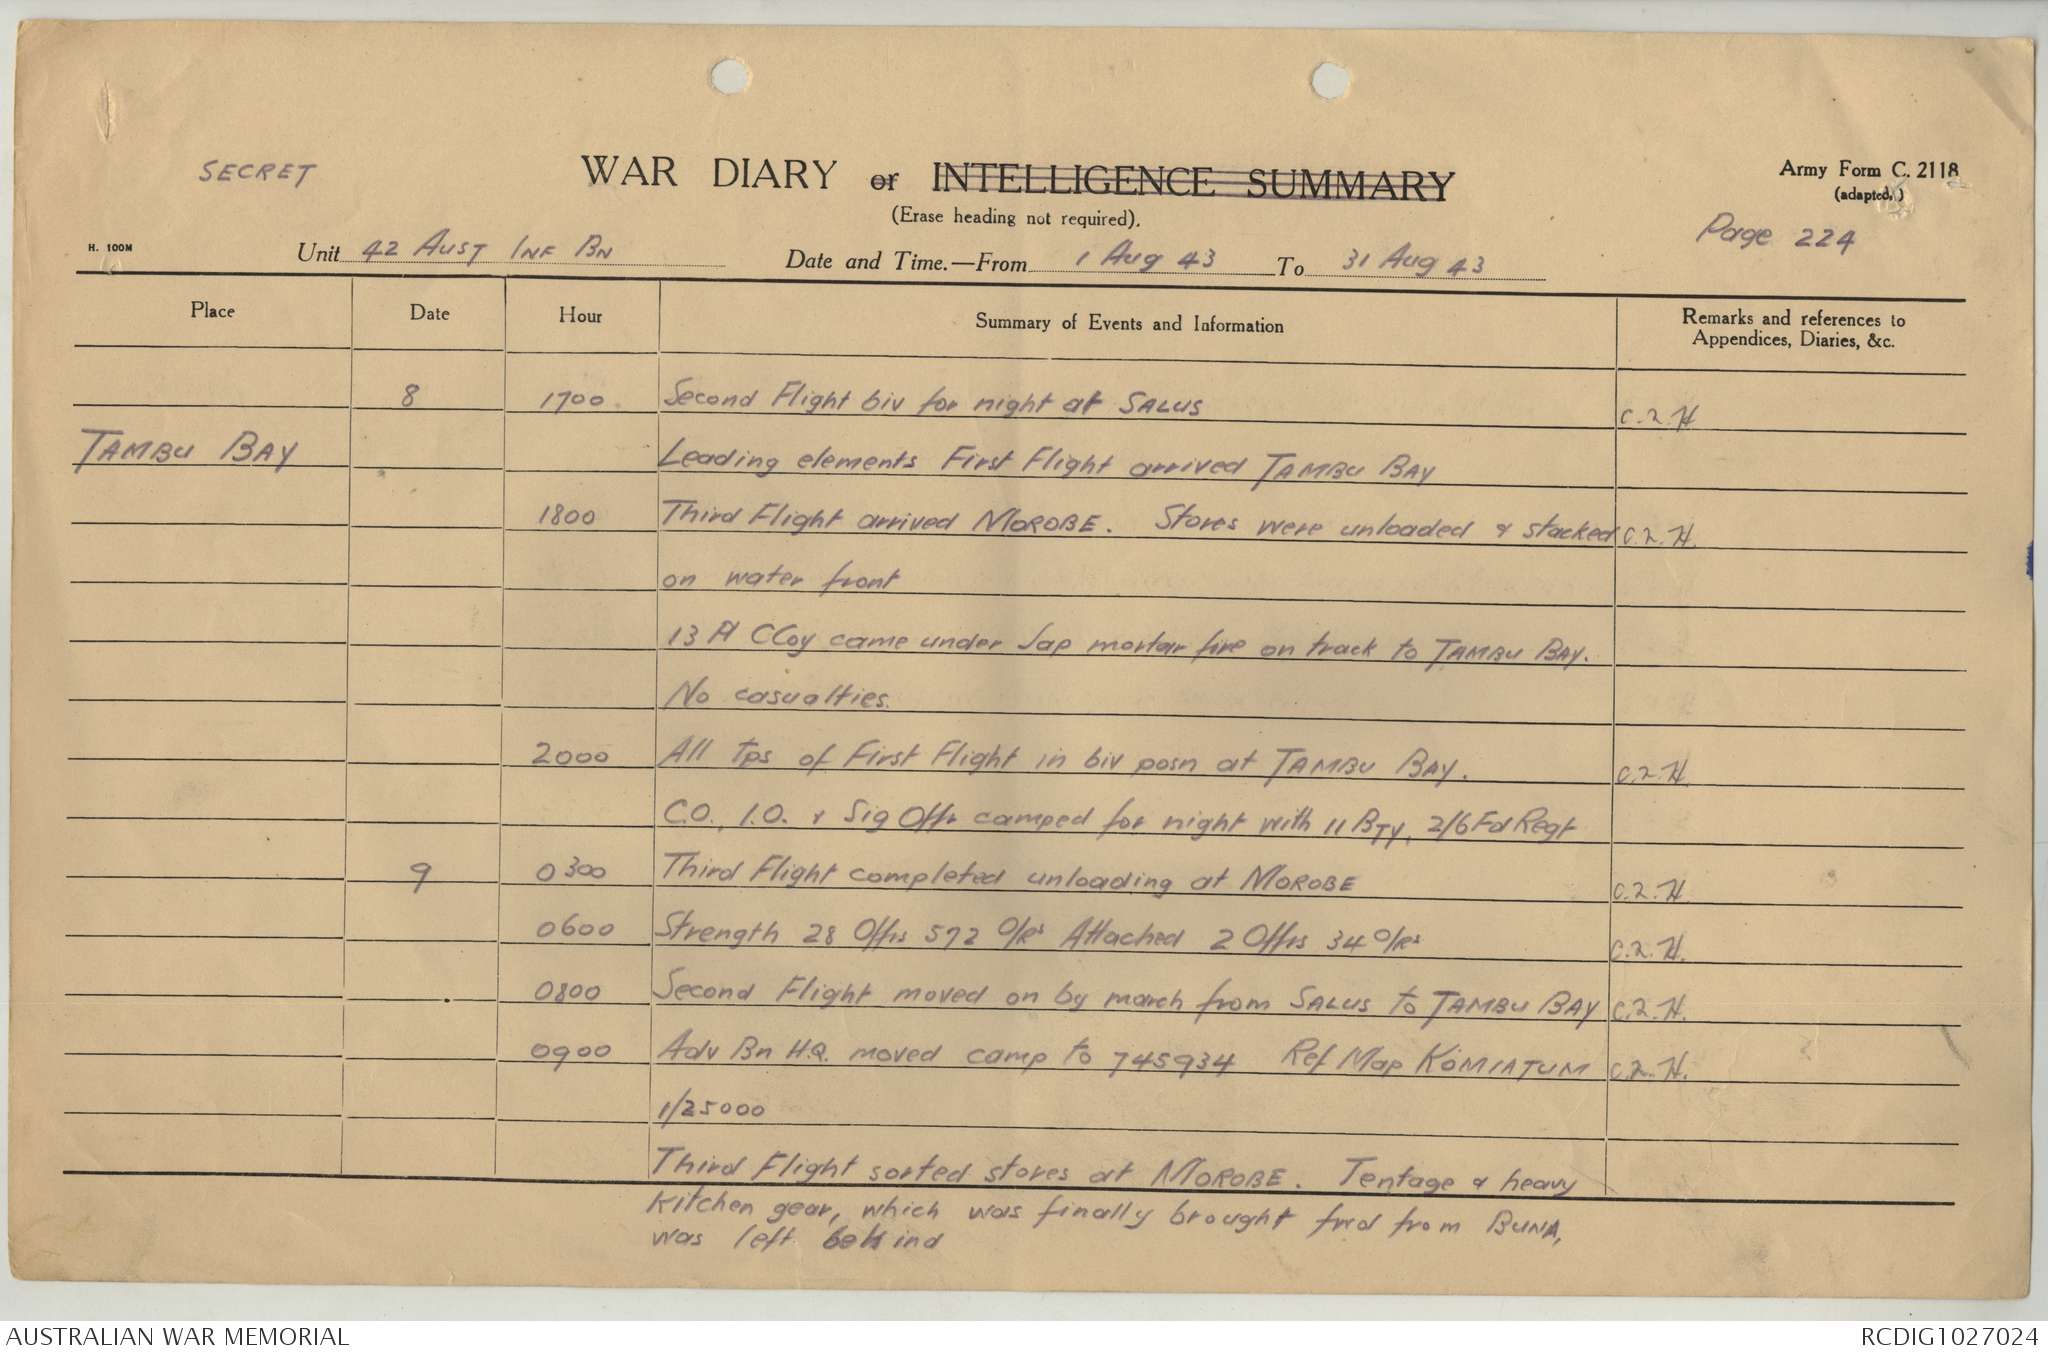 SECRET
WAR DIARY or INTELLIGENCE SUMMARY
(Erase heading not required).
Army Form C. 2118
(adapted.)
Page 224
H. 100M
Unit 42 AUST INF BN Date and Time.—From 1 Aug 43 To 31 Aug 43
Place Date Hour Summary of Events and Information Remarks and references to Appendices, Diaries, &c.
8 1700 Second Flight biv for night at SALUS C.2.H
TAMBU BAY Leading elements First Flight arrived TAMBU BAY
1800 Third Flight arrived MOROBE. Stores were unloaded & stacked C.2.H.
on water front
13 Pl C Coy came under Jap mortar fire on track to TAMBU BAY.
No casualties.
2000 All tps of First Flight in biv posn at TAMBU BAY. C.2.H.
C.O., I.O. & Sig Offr camped for night with 11 BTY, 2/6 Fd Regt
9 0300 Third Flight completed unloading at MOROBE C.2.H.
0600 Strength 28 Offrs 572 O/Rs Attached 2 Offrs 34 O/Rs C.2.H.
0800 Second Flight moved on by march from SALUS to TAMBU BAY C.2.H.
0900 Adv Bn H.Q. moved camp to 745934 Ref Map KOMIATUM C.2.H.
1/25000
Third Flight sorted stores at MOROBE. Tentage & heavy
kitchen gear, which was finally brought fwd from BUNA,
was left behind
AUSTRALIAN WAR MEMORIAL RCDIG1027024